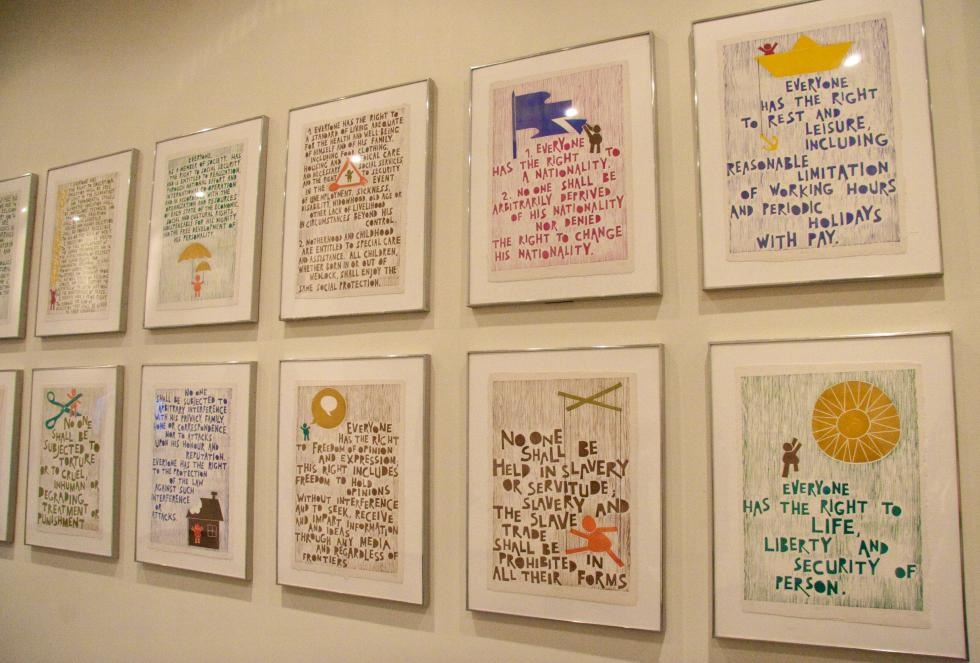 EVERYONE
AS A MEMBER OF SOCIETY, HAS
THE RIGHT TO SOCIAL SECURITY
AND IS ENTITLED TO REALIZATION,
THROUGH NATIONAL EFFORT AND
INTERNATIONAL CO-OPERATION
OF EACH STATE, OF THE ECONOMIC,
SOCIAL AND CULTURAL RIGHTS
INDISPENSABLE FOR HIS DIGNITY
AND THE FREE DEVELOPMENT OF
HIS PERSONALITY.
1. EVERYONE HAS THE RIGHT TO
A STANDARD OF LIVING ADEQUATE
FOR THE HEALTH AND WELL BEING
OF HIMSELF AND OF HIS FAMILY,
INCLUDING FOOD, CLOTHING,
HOUSING AND MEDICAL CARE
AND NECESSARY SOCIAL SERVICES
AND THE RIGHT TO SECURITY
IN THE EVENT
OF UNEMPLOYMENT, SICKNESS,
DISABILITY, WIDOWHOOD, OLD AGE OR
OTHER LACK OF LIVELIHOOD
IN CIRCUMSTANCES BEYOND HIS
CONTROL.
2. MOTHERHOOD AND CHILDHOOD
ARE ENTITLED TO SPECIAL CARE
AND ASSISTANCE. ALL CHILDREN,
WHETHER BORN IN OR OUT OF
WEDLOCK, SHALL ENJOY THE
SAME SOCIAL PROTECTION.
1. EVERYONE
HAS THE RIGHT TO
A NATIONALITY.
2. NO ONE SHALL BE
ARBITRARILY DEPRIVED
OF HIS NATIONALITY
NOR DENIED
THE RIGHT TO CHANGE
HIS NATIONALITY.
EVERYONE
HAS THE RIGHT
TO REST AND
LEISURE,
INCLUDING
REASONABLE
LIMITATION
OF WORKING HOURS
AND PERIODIC
HOLIDAYS
WITH PAY.
NO ONE
SHALL BE
SUBJECTED TO
TORTURE
OR TO CRUEL,
INHUMAN OR
DEGRADING
TREATMENT OR
PUNISHMENT.
NO ONE
SHALL BE SUBJECTED TO
ARBITRARY INTERFERENCE
WITH HIS PRIVACY, FAMILY
HOME OR CORRESPONDENCE
NOR TO ATTACKS
UPON HIS HONOUR AND
REPUTATION.
EVERYONE HAS THE RIGHT
TO THE PROTECTION
OF THE LAW
AGAINST SUCH
INTERFERENCE
OR
ATTACKS.
EVERYONE
HAS THE RIGHT
TO FREEDOM OF OPINION
AND EXPRESSION.
THIS RIGHT INCLUDES
FREEDOM TO HOLD
OPINIONS
WITHOUT INTERFERENCE
AND TO SEEK, RECEIVE
AND IMPART INFORMATION
AND IDEAS
THROUGH ANY MEDIA
AND REGARDLESS OF
FRONTIERS
NO ONE SHALL BE
HELD IN SLAVERY
OR SERVITUDE;
SLAVERY AND
THE SLAVE
TRADE
SHALL BE
PROHIBITED IN
ALL THEIR FORMS
EVERYONE
HAS THE RIGHT TO
LIFE,
LIBERTY AND
SECURITY OF
PERSON.